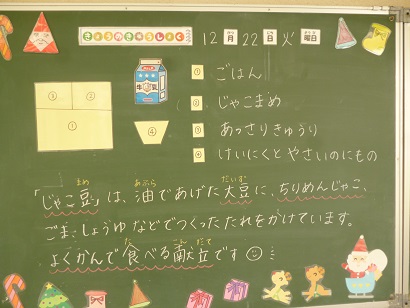 きょうのきゅうしょく
12月22日火曜日
牛乳
① ごはん
② じゃこまめ
③ あっさりきゅうり
④ けいにくとやさいのにもの
③ ②
①
④
「じゃこ豆」は、油であげた大豆に、ちりめんじゃこ、
ごま、しょうゆなどでつくったたれをかけています。
よくかんで食べる献立です